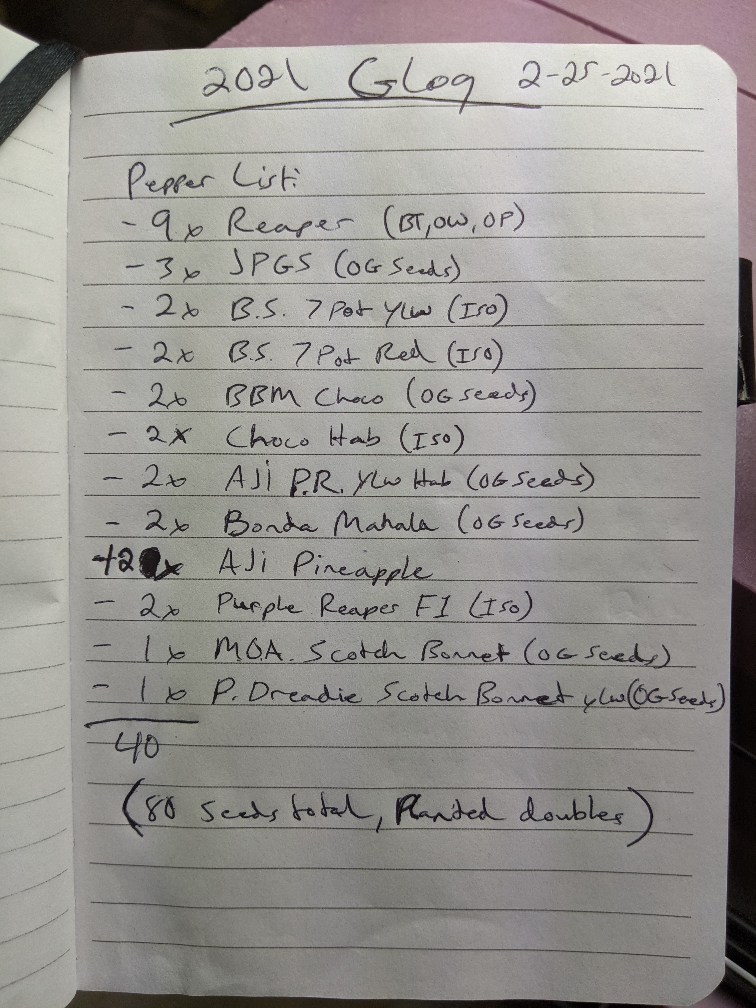 2021 Glog 2-25-2021
Pepper List:
- 9x Reaper (BT, OW, OP)
- 3x JPGS (OG Seeds)
- 2x B.S. 7 Pot Ylw (Iso)
- 2x B.S. 7 Pot Red (Iso)
- 2x BBM Choco (OG seeds)
- 2x Choco Hab (Iso)
- 2x AJi P.R. Ylw Hab (OG Seeds)
- 2x Bonda Mahala (OG Seeds)
-12x AJi Pineapple
- 2x Purple Reaper F1 (Iso)
- 1x M.O.A. Scotch Bonnet (OG seeds)
- 1x P. Dreadie Scotch Bonnet ylw (OG Seeds)
40
(80 Seeds total, Planted doubles)